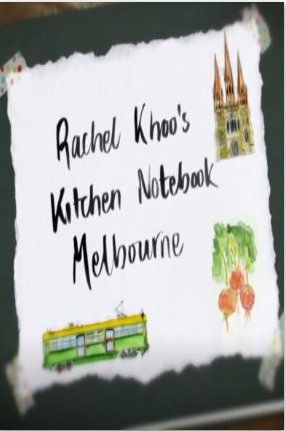 Rachel Khoo's
Kitchen Notebook
Melbourne